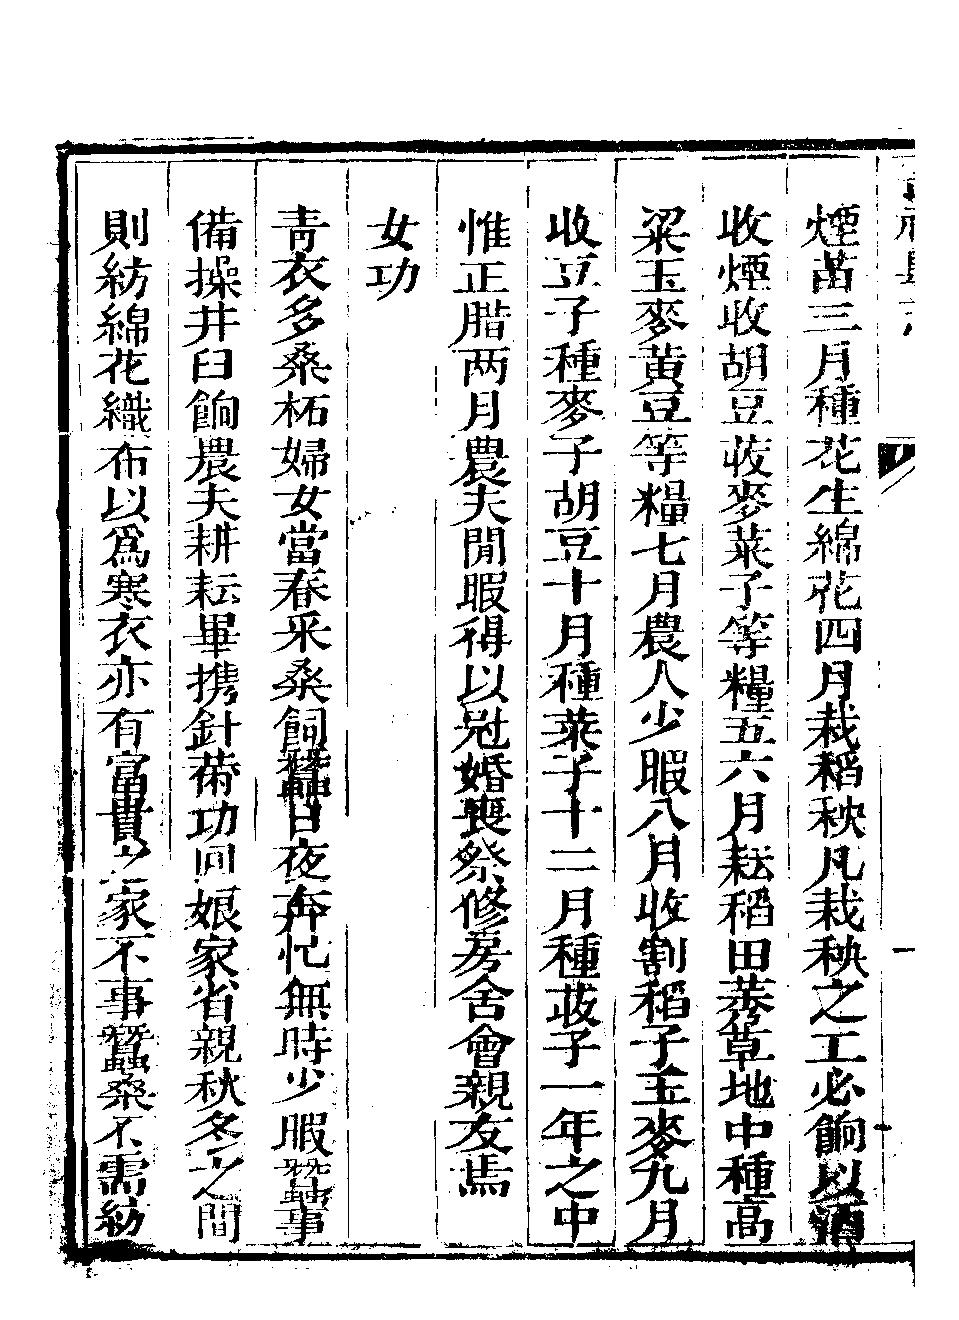 煙苗三月種花生綿花四月栽稻秧凡栽秧之工必餉以酒
收煙收胡豆菽麥菜子等糧五六月耘稻田薅草地中種高
粱玉麥黄豆等糧七月農人少暇八月收割稻子玉麥九月
收豆子種麥子胡豆十月種菜子十二月種菽子一年之中
惟正腊两月農夫閒暇得以冠婚喪祭修房舍會親友焉
女功
青衣多桑柘婦女當春采桑飼蠶日夜奔忙無時少暇蠶事
備操井臼餉農夫耕耘畢携針黹功囘娘家省親秋冬之間
則紡綿花織布以爲寒衣亦有富貴之家不事蠶桑不需紡